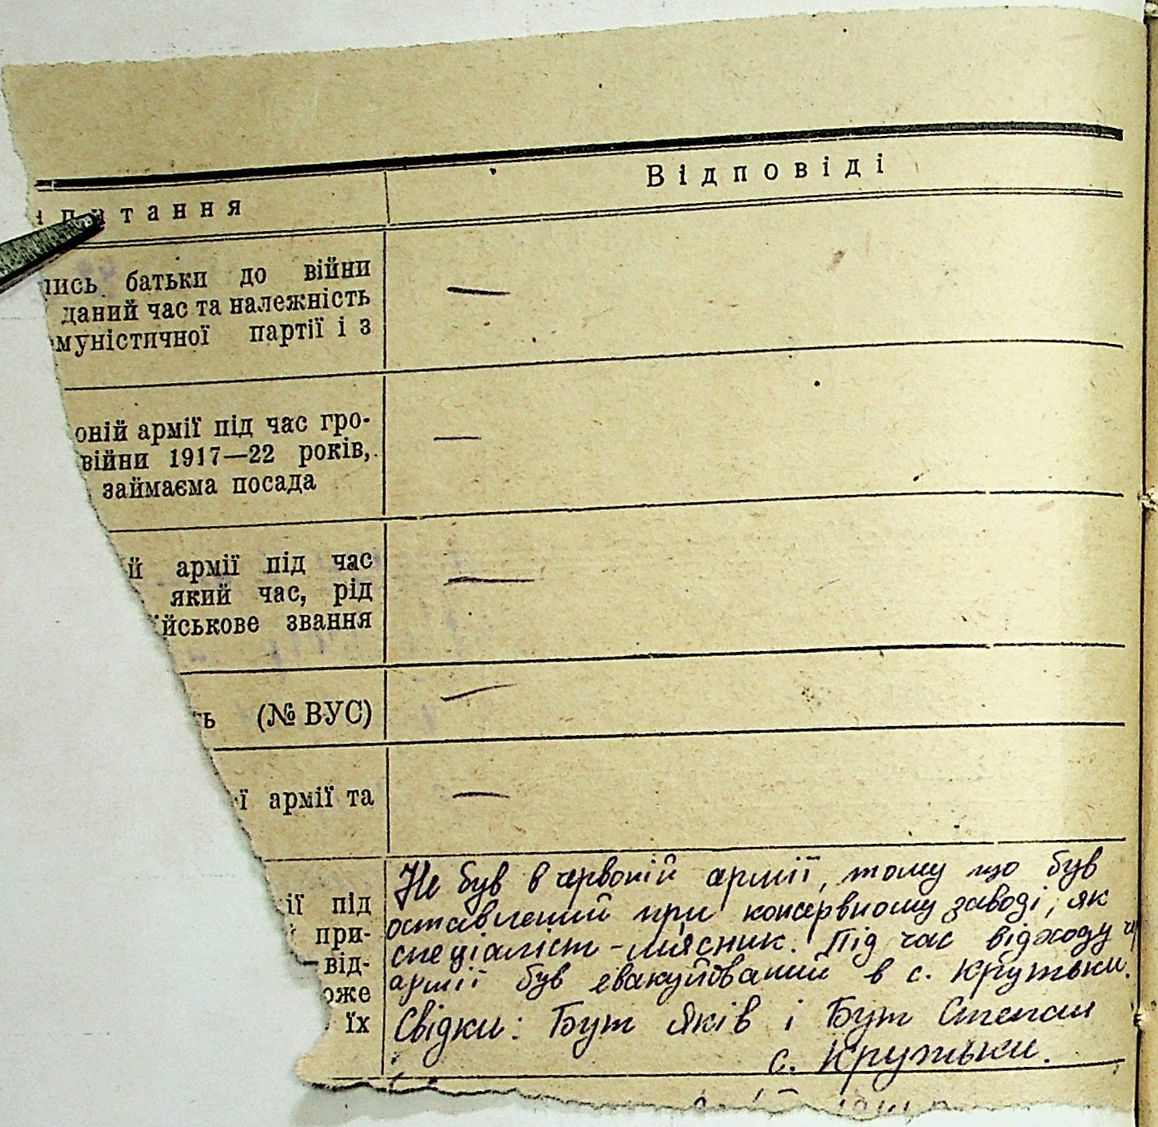 питання
Відповіді
лись батьки до війни
даний час та належність
муністичної партії і з
оній армії під час гро-
війни 1917—22 років,
займаєма посада
й армії під час
який час, рід
йськове звання
ть (№ ВУС)
ї армії та
ії під
й при-
від-
оже
їх
Не був в червоній армії, тому що був
оставлений при консервному заводі, як
спеціаліст-мясник. Під час відходу ч.
армії був евакуйований в с. Крутьки.
Свідки: Бут Яків і Бут Степан
с. Крутьки.